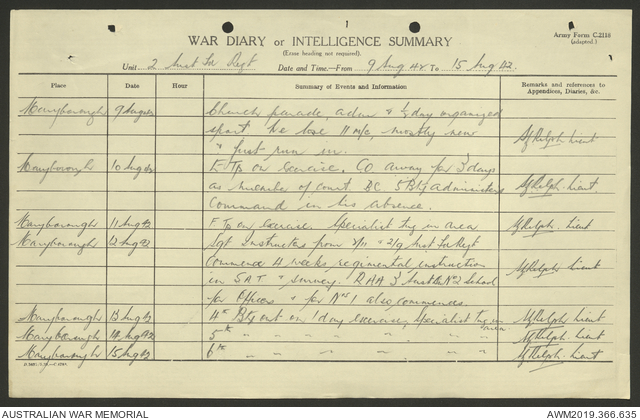 1
Army Form C.2118
(adapted.)
WAR DIARY or INTELLIGENCE SUMMARY
(Erase heading not required).
Unit 2 Aust Regt Date and Time—From 9 Aug 42 To 15 Aug 42.
Place Date Hour Summary of Events and Information Remarks and references to Appendices, Diaries, &c.
Maryborough 9 Aug 42 Church parade, adm & ½ day organized
sport. We lose 11 m/c, mostly new
" just run in. Relph Lieut
Maryborough 10 Aug 42 E Tp on exercise. CO away for 3 days
as member of court. BC 5 Bty administers
Command in his absence. Relph Lieut
Maryborough 11 Aug 42 F Tp on exercise. Specialist tng in area Relph Lieut
Maryborough 12 Aug 42 Sgt Instructors from & 2/9 Aust Regt
Commence 4 weeks regimental instruction
in SAT & survey. RAA 3 Aust No 2 School
for Officers & for Nos 1 also commences. Relph Lieut
Maryborough 13 Aug 42 4th Bty out on 1 day exercise, specialist tng in area Relph Lieut
Maryborough 14 Aug 42 5th " " " " " " " Relph Lieut
Maryborough 15 Aug 42 6th " " " " " " " Relph Lieut
AUSTRALIAN WAR MEMORIAL AWM2019.366.635